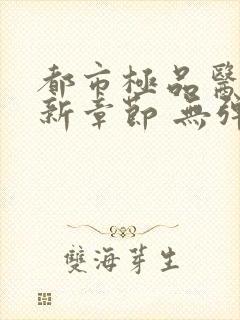 都市極品醫
新章節 無彈
雙海芽生